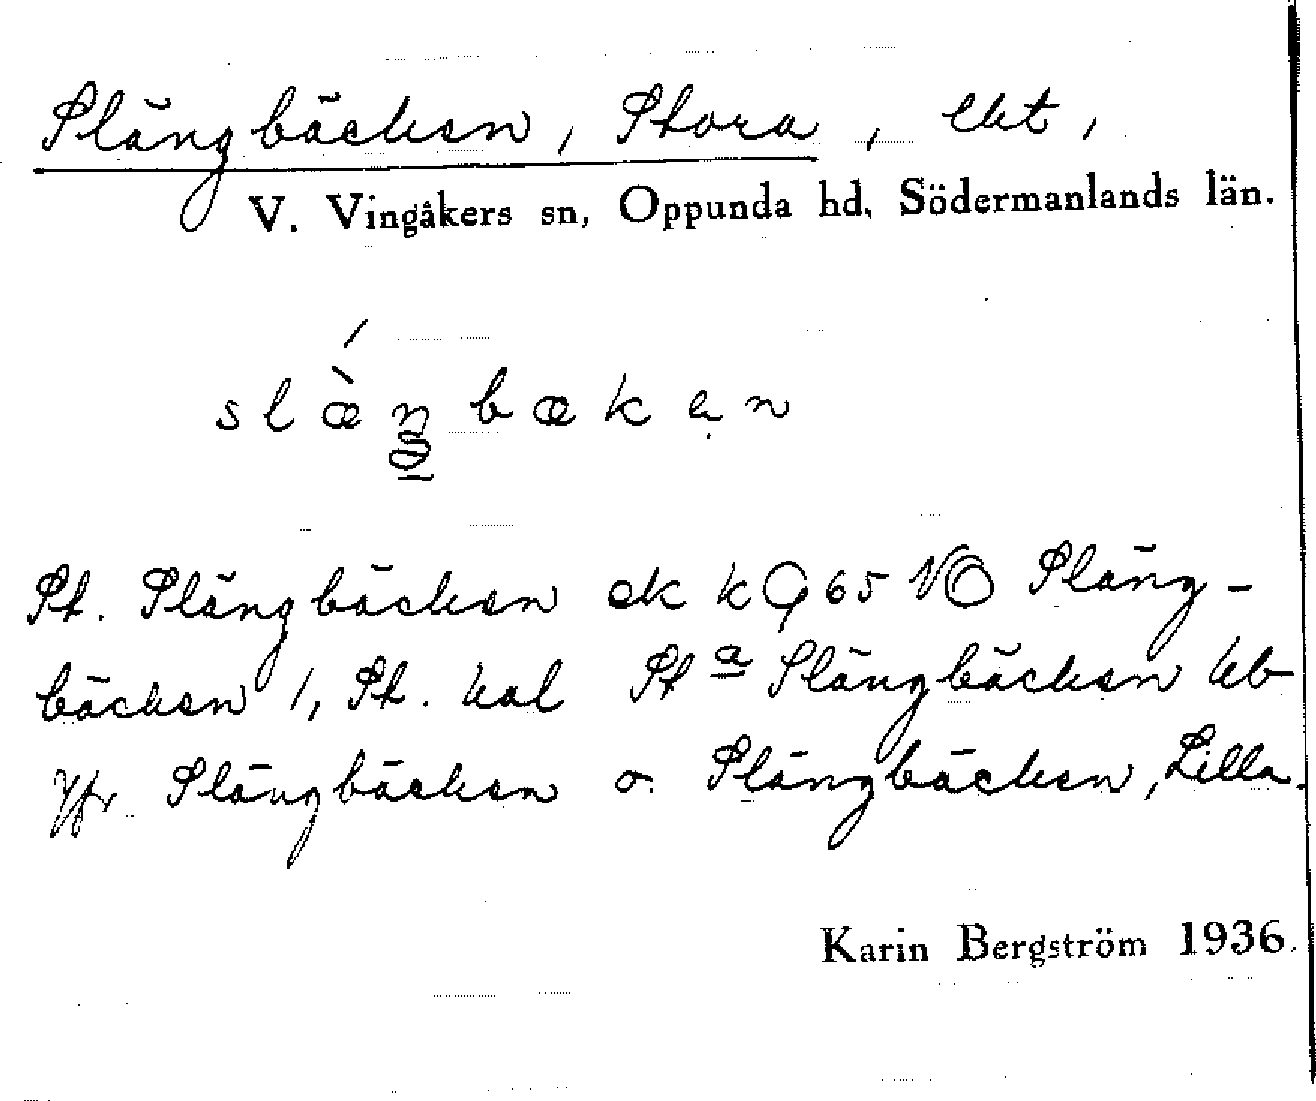 Slängbäcken, Stora, lht,
V. Vingåkers sn, Oppunda hd, Södermanlands län.
slæŋbækən
St. Slängbäcken ek k 65 VO Släng-
bäcken 1, St. hal St a Slängbäcken hb
Jfr Slängbäcken o. Slängbäcken, Lilla.
Karin Bergström 1936.